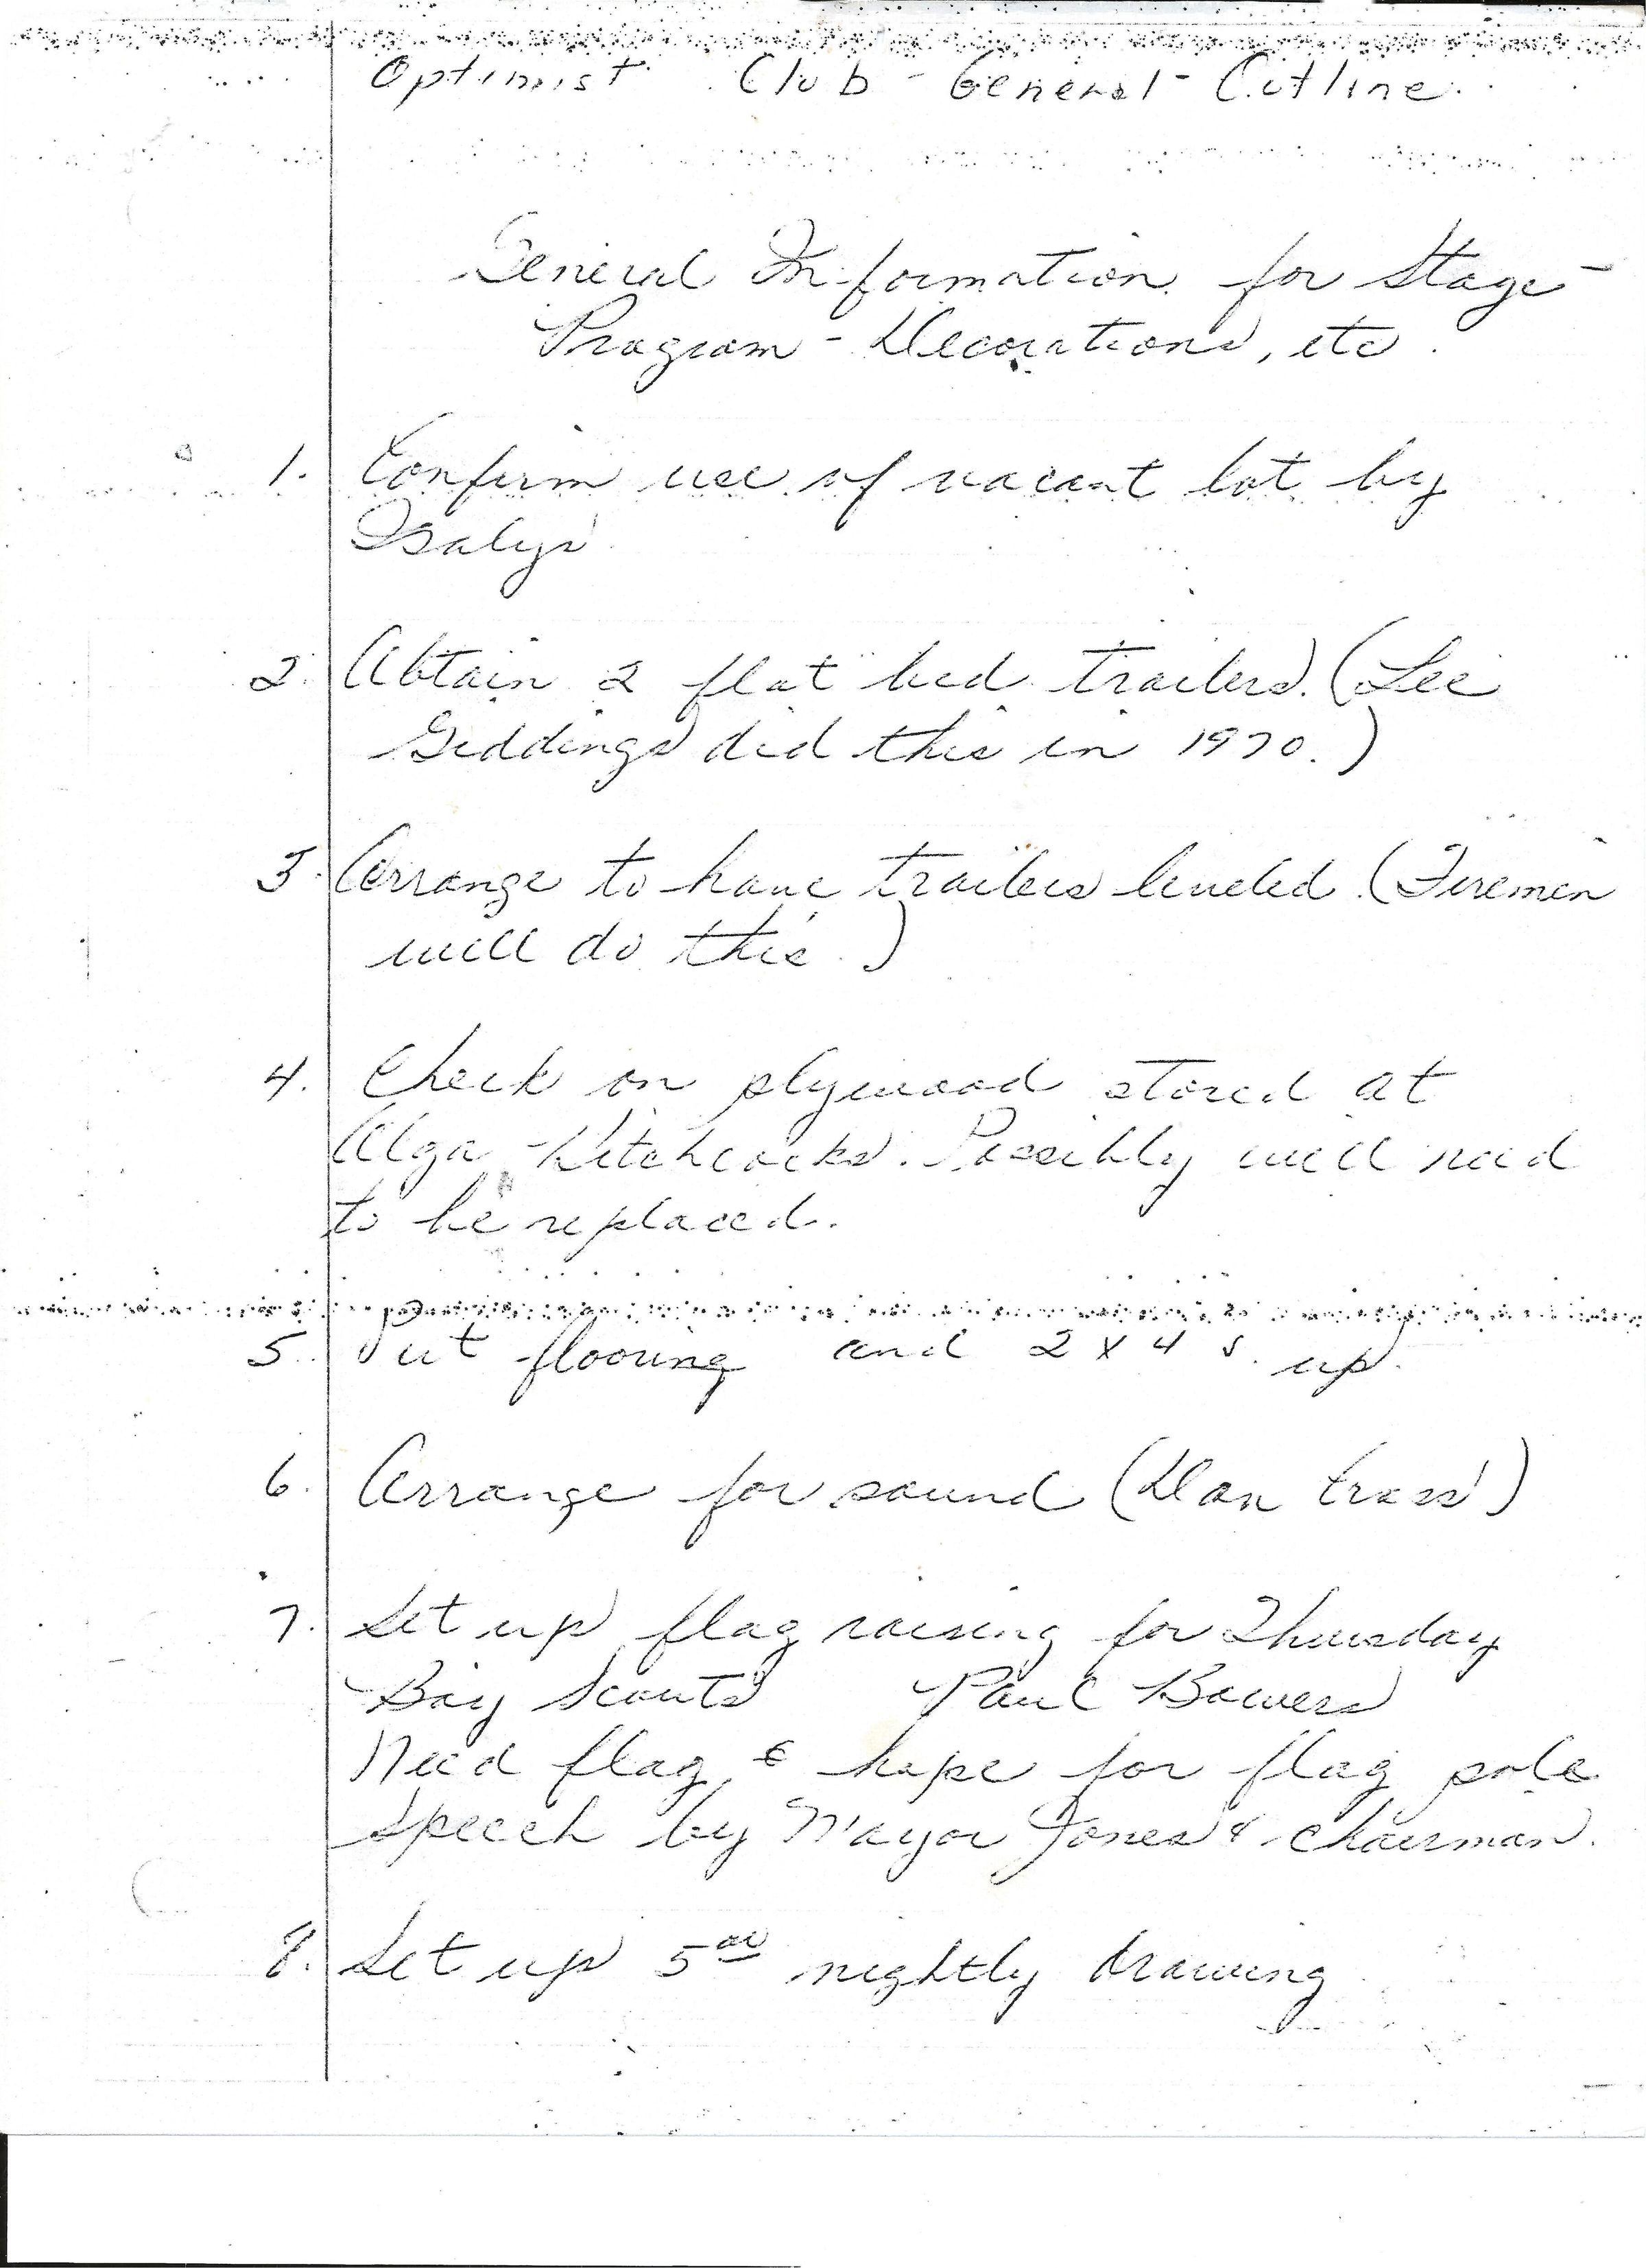 Optimist Club - General - Outline
General Information for Stage -
Program - Decorations, etc.
1. Confirm use of vacant lot by
Isalys
2. Obtain 2 flat bed trailers. (Lee
Giddings did this in 1970.)
3. Arrange to have trailers leveled. (Firemen
will do this.)
4. Check on plywood stored at
Alga Hitchcocks. Possibly will need
to be replaced.
5. Put flooring and 2 x 4 s. up.
6. Arrange for sound (Dan
7. Set up flag raising for Thursday
Boy Scouts Paul Bowers
Need flag & hope for flag pole
Speech by Mayor Jones & chairman.
8. Set up 5 00 nightly drawing